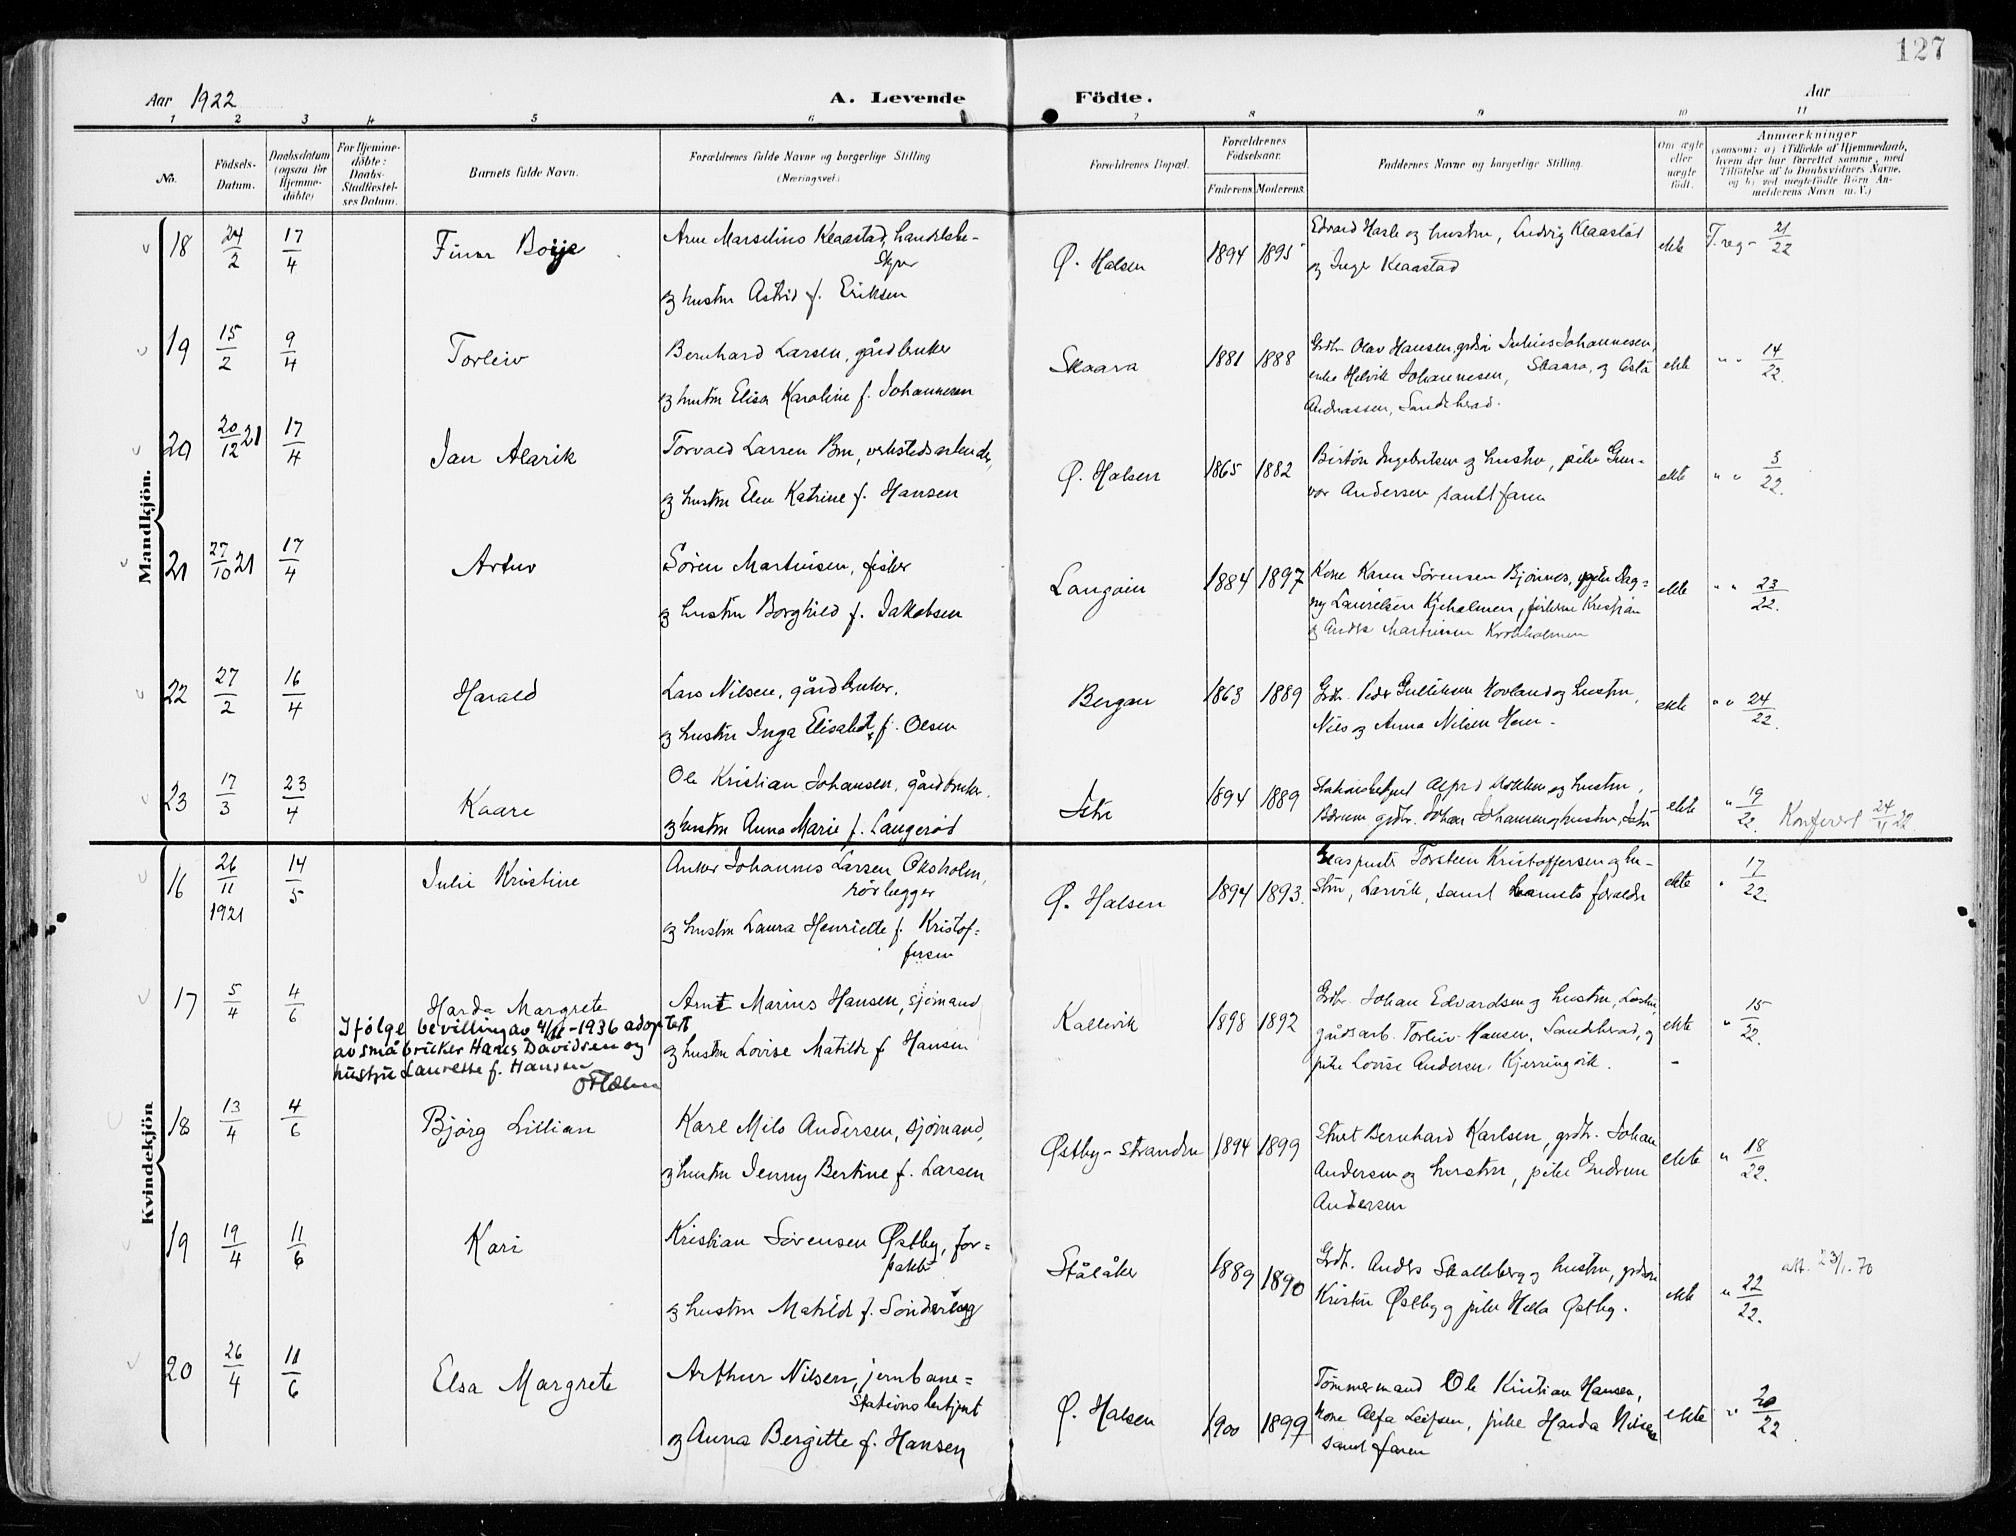 127
Aar 1922
A. Levende Födte.
Aar
1 2 3 4 5 6 7 8 9 10 11
No.
Födsels-
Datum.
Daabsdatum
(ogsaa for
Hjemme-
döbte)
For Hjemme-
döbte:
Daabs-
Stadfæstel-
ses Datum.
Barnets fulde Navn.
Forældrenes fulde Navne og borgerlige Stilling
(Næringsvei)
Forældrenes Bopæl.
Forældrenes
Födselsaar.
Faderens. Moderens.
Faddernes Navne og borgerlige Stilling.
Om ægte
eller
uægte
födt.
Anmærkninger
(saasom: a) i Tilfælde af Hjemmedaab,
hvem der har forrettet samme, med
Tilföielse af to Daabsvidners Navne,
og b) ved uægtefödte Börn An-
melderens Navn m. V.)
Mandkjön.
18 24/2 17/4 Finn Børje
Arne Marselius Klaastad, handelsbe-
styrer
og hustru Astrid f. Eriksen
Ø. Halsen 1894 1895
Edvard Hasle og hustru, Ludvig Klaastad
og Inger Klaastad
ekte T. reg - 21/22
19 15/2 9/4 Torleiv
Bernhard Larsen, gårdbruker
og hustru Elisa Karoline f. Johannesen
Skaara 1881 1888
Grdbr. Olav Hansen, grdsøn Julius Johannesen,
enke Helvik Johannesen, Skaara, og Asta
Andreassen, Sandeherad.
ekte " " 14/22.
20 20/12 21 17/4 Jan Alarik
Torvald Larsen Bru, verkstedsarbeider,
og hustru Elen Katrine f. Hansen
Ø. Halsen 1865 1882
Ingebritsen og hustru, pike Gun-
vor Andersen samt faren
ekte " " 3/22.
21 27/10 21 17/4 Artur
Søren Martinsen, fisker
og hustru Borghild f. Jakobsen
Langøin 1884 1897
Kone Karen Sørensen Bjønnes, pike Dag-
ny Lauritsen Kjeholmen, fiskerne Kristian
og Anders Martinsen Krokholmen
ekte " " 23/22.
22 27/2 16/4 Harald
Lars Nilsen, gårdbruker,
og hustru Inga Elisabet f. Olsen
Bergan 1863 1889
Grdbr. Peder Gulliksen Hovland og hustru,
Nils og Anna Nilsen Hem -
ekte " " 24/22.
23 17/3 23/4 Kaare
Ole Kristian Johansen, gårdbruker,
og hustru Anna Marie f. Langerød
Istre 1894 1889
Stationsbetjent Alfred Mokken og hustru,
Bærum grdbr. Johan Johansen og hustru, Istre
ekte " 19/22. Konferert 24/4 22
Kvindekjön
16 26/11 1921 14/5 Julie Kristine
Anker Johannes Larsen Oksholm,
rörlegger
og hustru Laura Henriette f. Kristof-
fersen
Ø. Halsen 1894 1893.
Torstein Kristoffersen og hu-
stru, Larvik, samt barnets foreldre
ekte " 17/22.
17 5/4 4/6 Harda Margrete
Ifølge bevilling av 4/11-1936 adoptert
av småbruker Hans Davidsen og
hustru Laurette f. Hansen
Arnt Marius Hansen, sjømand
og hustru Lovise Matilde f. Hansen
Kallevik 1898 1892
Grdbr. Johan Edvardsen og hustru, Løstad,
gårdsarb. Torleiv Hansen, Sandeherad, og
pike Lovise Andersen, Kjerringvik.
ekte " 15/22.
18 13/4 4/6 Bjørg Lillian
Karl Milo Andersen, sjømand,
og hustru Jenny Bertine f. Larsen
Østby-stranden 1894 1899
Bernhard Karlsen, grdbr. Johan
Andersen og hustru, pike Gudrun
Andersen
ekte " 18/22.
19 19/4 11/6 Kari
Kristian Sørensen Østby, for-
pakter
og hustru Matilde f. Sønderberg
Stålåker 1889 1890
Grdbr. Anders Skalleberg og hustru, grdsøn
Kristen Østby og pike Hella Østby.
ekte " 22/22. att. 23/1.70
20 26/4 11/6 Elsa Margrete
Arthur Nilsen, jernbane-
stationsbetjent
og Anna Bergitte f. Hansen
Ø. Halsen 1900 1899
Tømmermand Ole Kristian Hansen,
kone Alfa Leifsen, pike Harda Nilsen
samt faren
ekte " 20/22